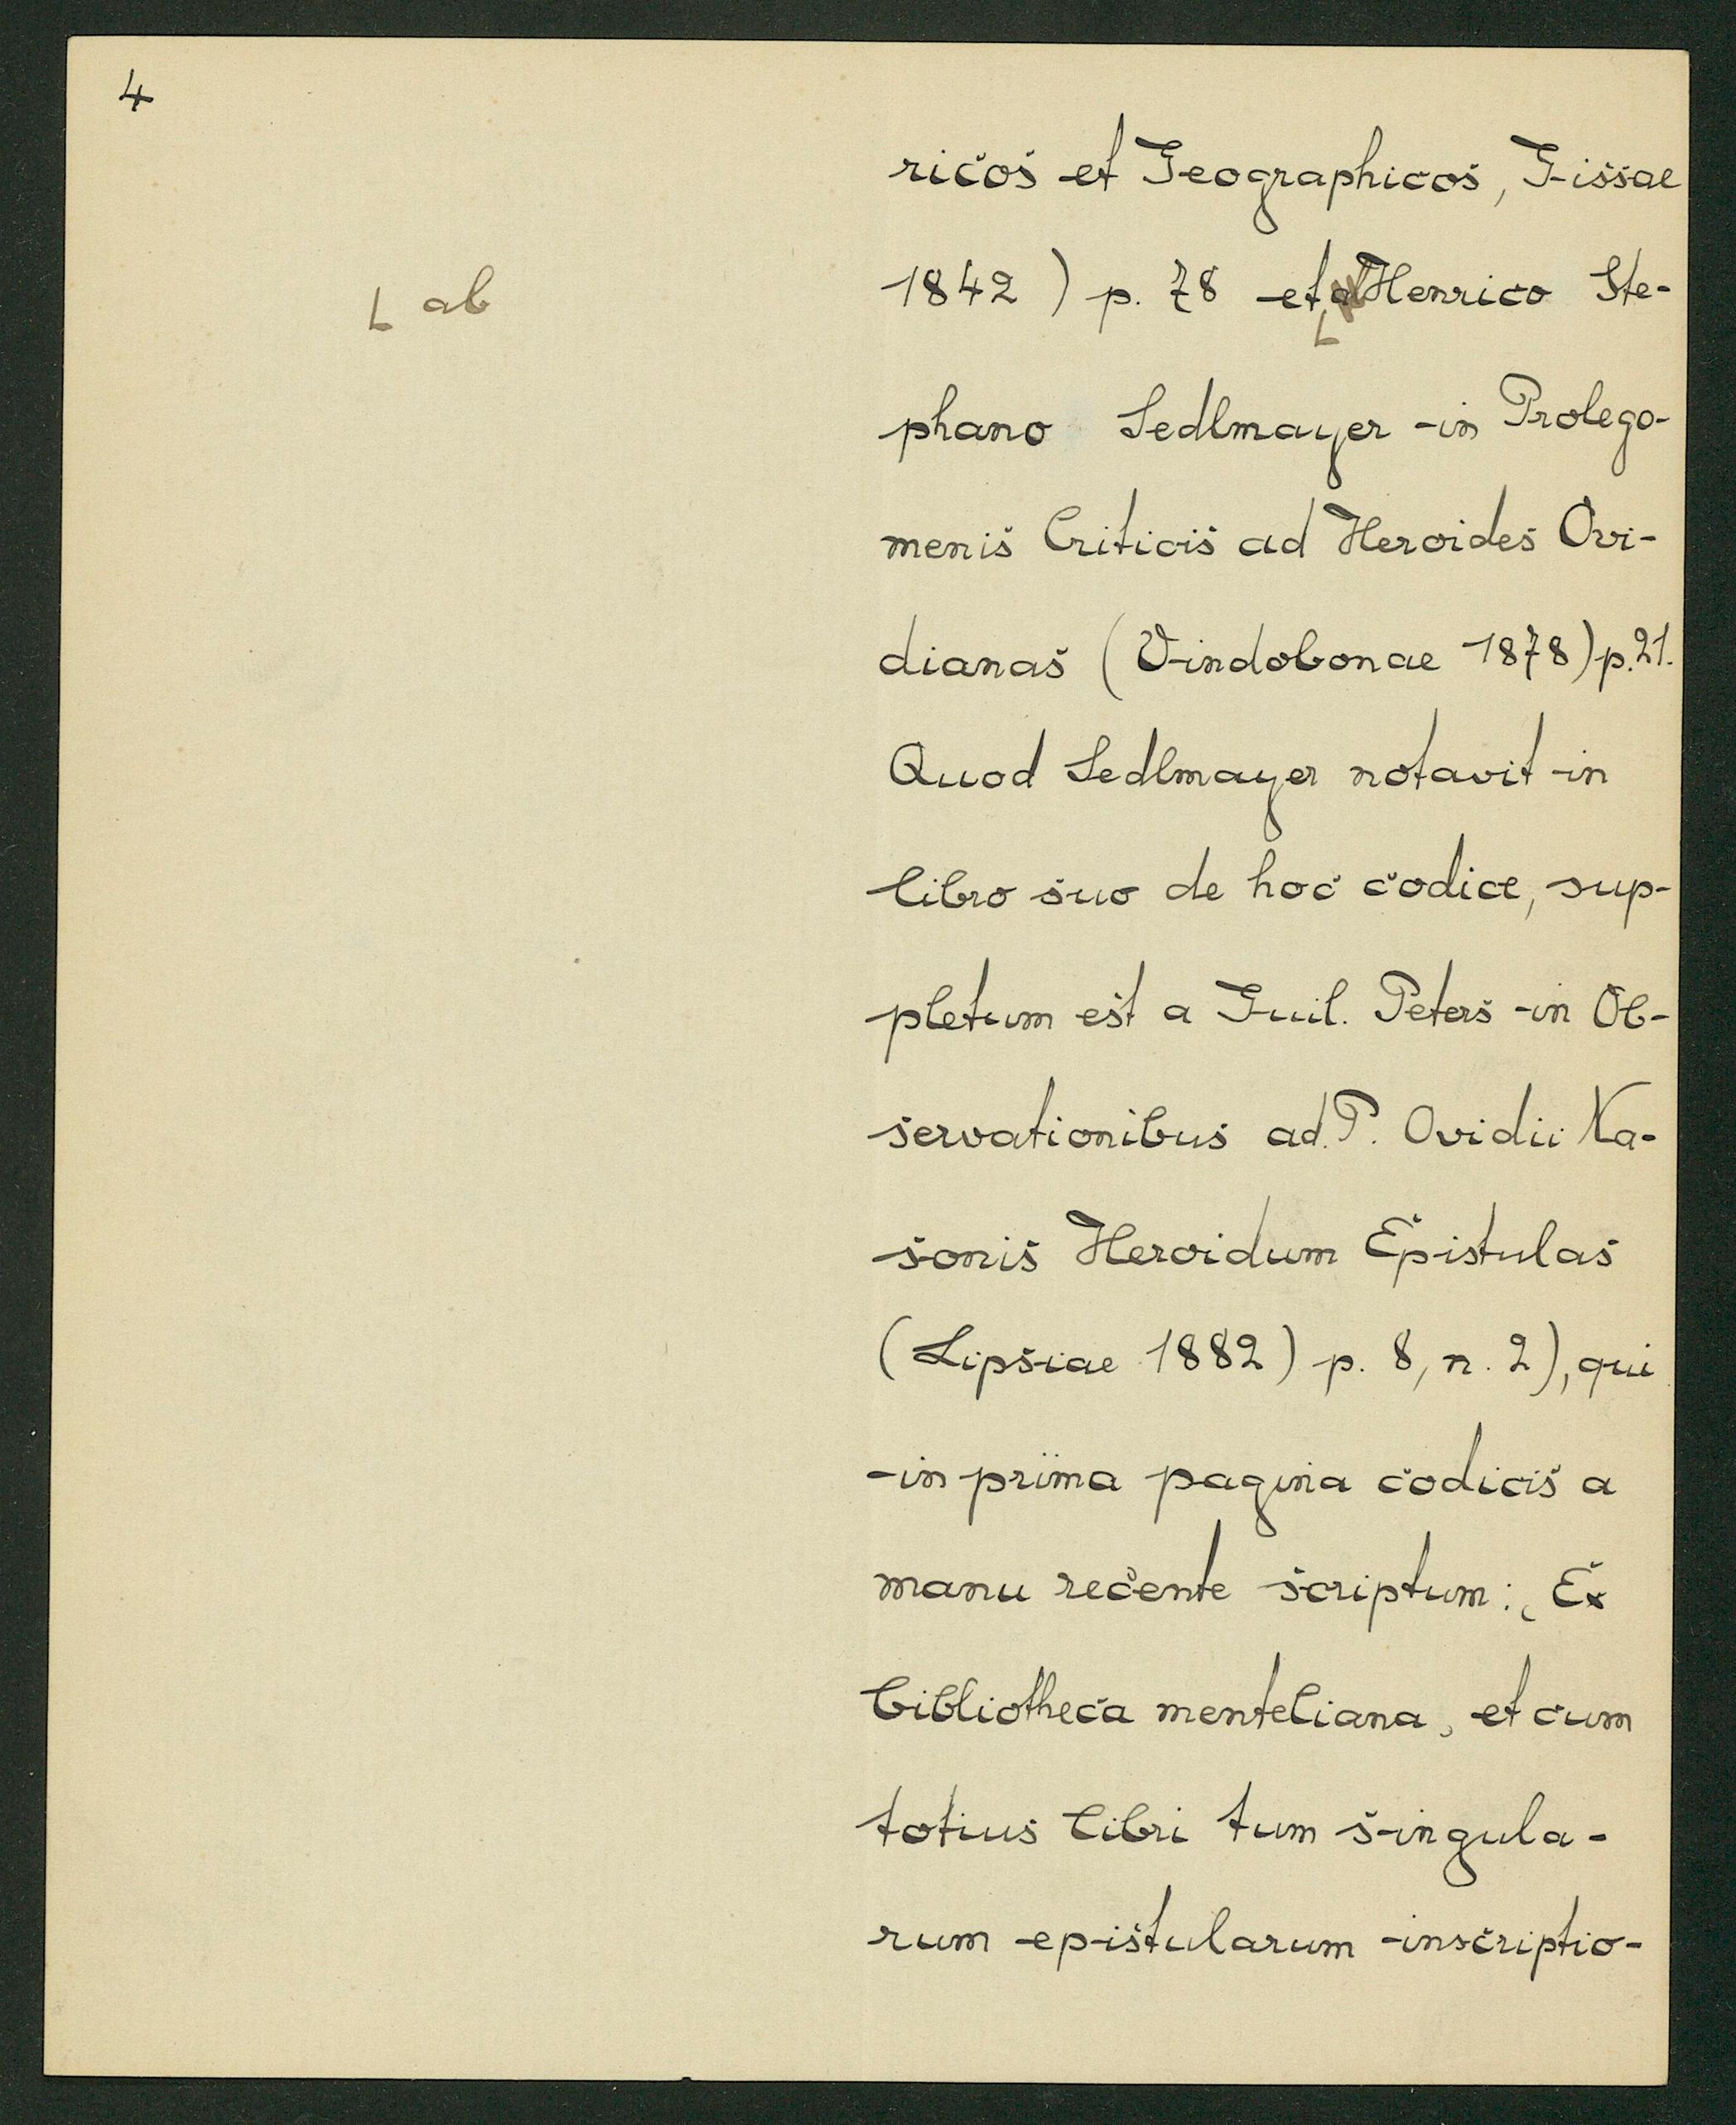 4
ricos et Geographicos, Gissae
1842) p. 78 et a Henrico Ste-
⌊ ab
phano Sedlmayer in Prolego-
menis Criticis ad Heroides Ovi-
dianas (Vindobonae 1878) p. 21.
Quod Sedlmayer notavit in
libro suo de hoc codice, sup-
pletum est a Guil. Peters in Ob-
servationibus ad P. Ovidii Na-
sonis Heroidum Epistulas
(Lipsiae 1882) p. 8, n. 2), qui
in prima pagina codicis a
manu recente scriptum: ‚Ex
bibliotheca menteliana‚ et cum
totius libri tum singula-
rum epistularum inscriptio-